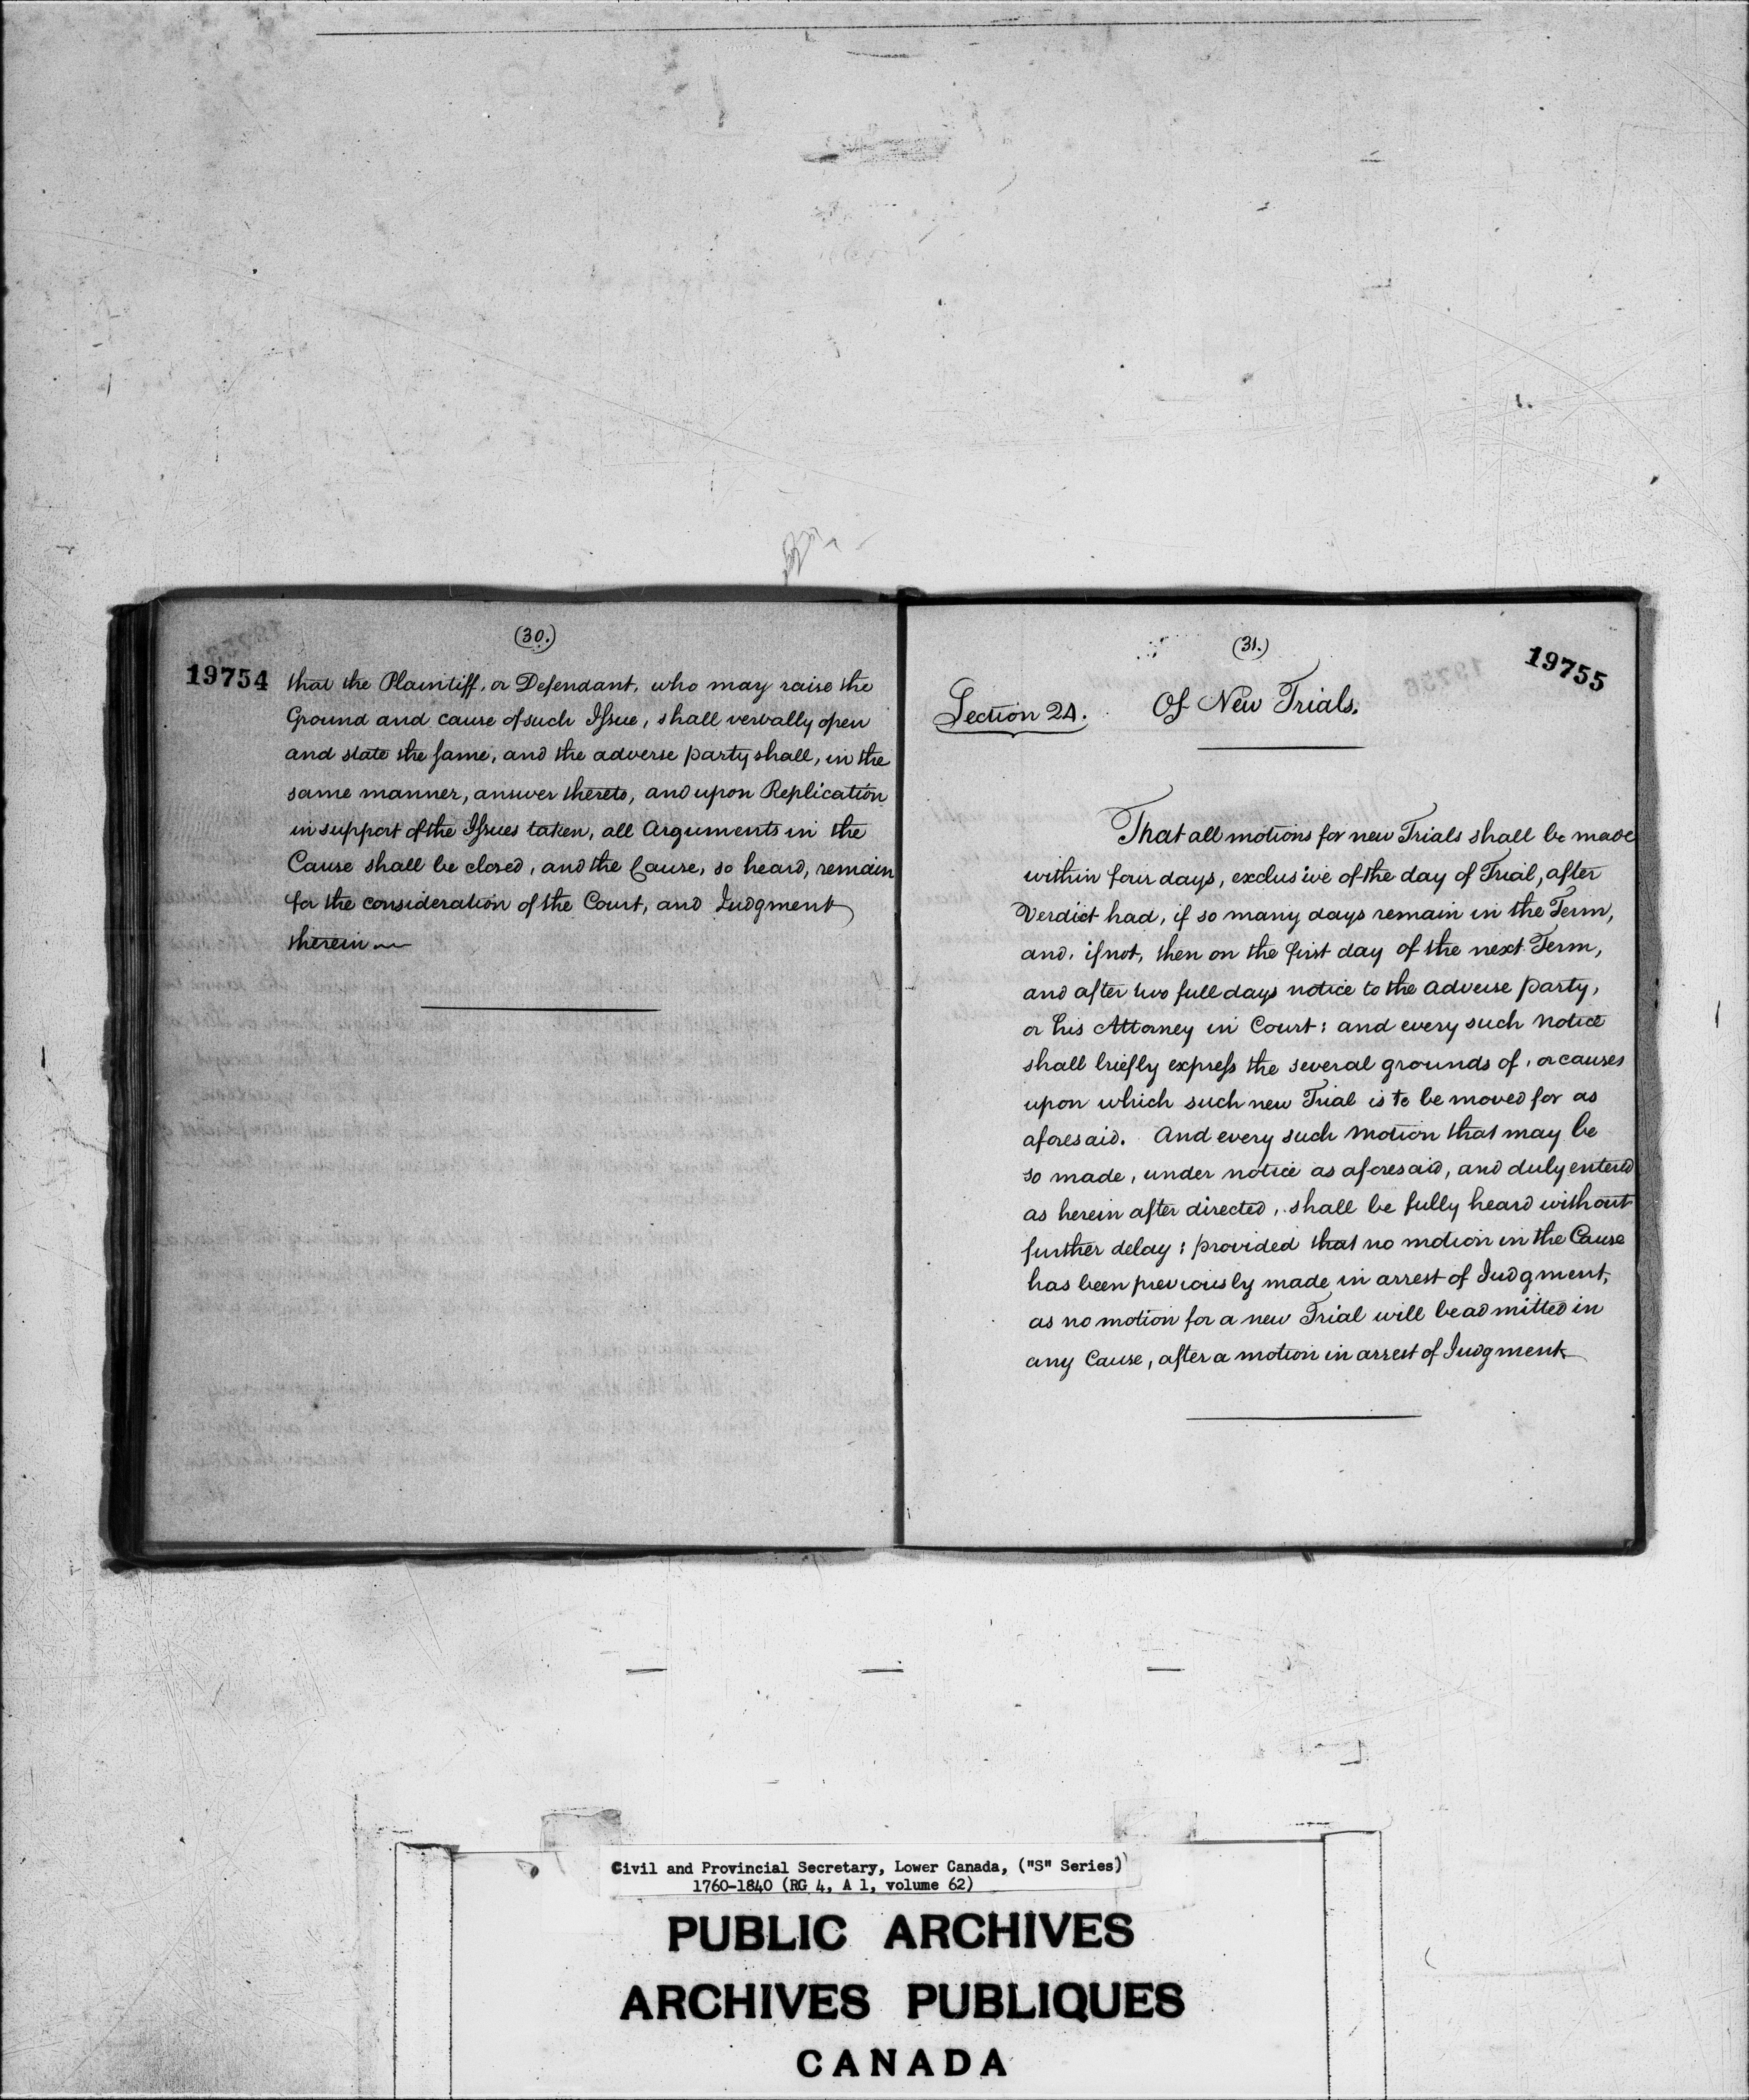 (30.)
19754
that the Plaintiff, or Defendant, who may raise the
Ground and cause of such Issue, shall verbally open
and state the same, and the adverse party shall, in the
same manner, answer thereto, and upon Replication
in support of the Issues taken, all Arguments in the
Cause shall be closed, and the Cause, so heard, remain
for the consideration of the Court, and Judgment
therein
(31.)
19755
Section 24.
Of New Trials.
That all motions for new Trials shall be made
within four days, exclusive of the day of Trial, after
Verdict had, if so many days remain in the Term,
and, if not, then on the first day of the next Term,
and after two full days notice to the adverse party,
or his Attorney in Court: and every such notice
shall briefly express the several grounds of, or causes
upon which such new Trial is to be moved for as
aforesaid. And every such motion that may be
so made, under notice as aforesaid, and duly entered
as herein after directed, shall be fully heard without
further delay: provided that no motion in the Cause
has been previously made in arrest of Judgment,
as no motion for a new Trial will be admitted in
any Cause, after a motion in arrest of Judgment
Civil and Provincial Secretary, Lower Canada, ("S" Series)
1760-1840 (RG 4, A 1, volume 62)
PUBLIC ARCHIVES
ARCHIVES PUBLIQUES
CANADA